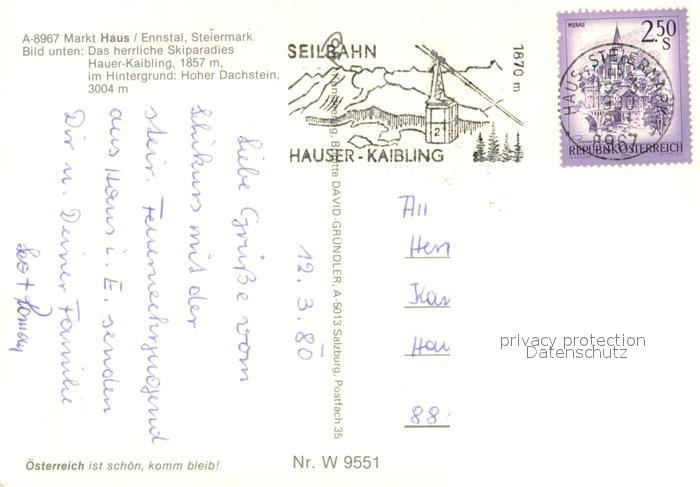 A-8967 Markt Haus / Ennstal, Steiermark
Bild unten: Das herrliche Skiparadies
Hauer-Kaibling, 1857 m,
im Hintergrund: Hoher Dachstein,
3004 m
SEILBAHN
1870 m
2
HAUSER-KAIBLING
MURAU
2.50
S
HAUS-STEIERMARK
8967
REPUBLIK ÖSTERREICH
12.3.80
Liebe Grüße vom
Skikurs mit der
steir. Feuerwehrjugend
aus Haus i. E. senden
Dir u. Deiner Familie
DAVID-GRÜNDLER, A-5013 Salzburg, Postfach 35
An
Herr
Kar
Hau
88
privacy protection
Datenschutz
Österreich ist schön, komm bleib!
Nr. W 9551